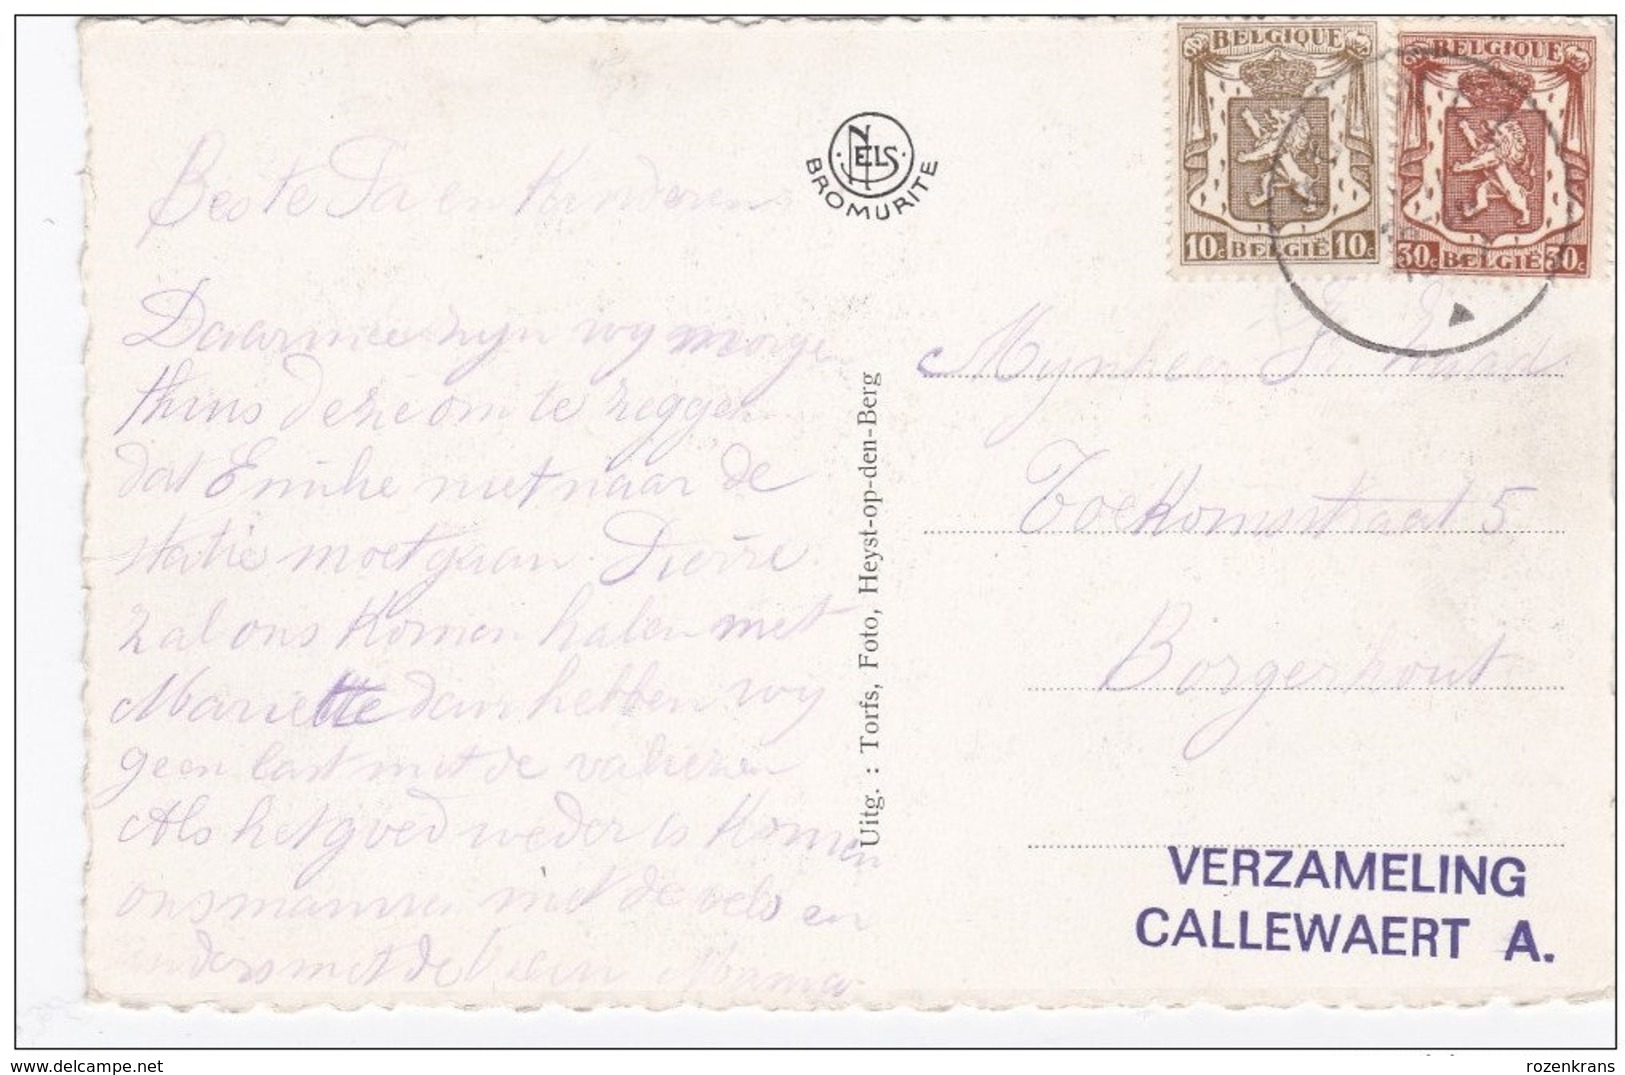 Beste Pa en Kinderen
Daarmee zyn wy morgen
thuis deze om te zeggen
dat Emilie niet naar de
statie moet gaan Pierre
zal ons komen halen met
Mariette dan hebben wy
geen last met de valiezen
Als het goed weder is komen
ons mannen met de velo en
anders met de trein Mama
NELS
BROMURITE
Uitg. : Torfs, Foto, Heyst-op-den-Berg
BELGIQUE
10c BELGIË 10c
BELGIQUE
30c BELGIË 30c
Mynheer
Toekomststraat 5
Borgerhout
VERZAMELING
CALLEWAERT A.
delcampe.net
rozenkrans